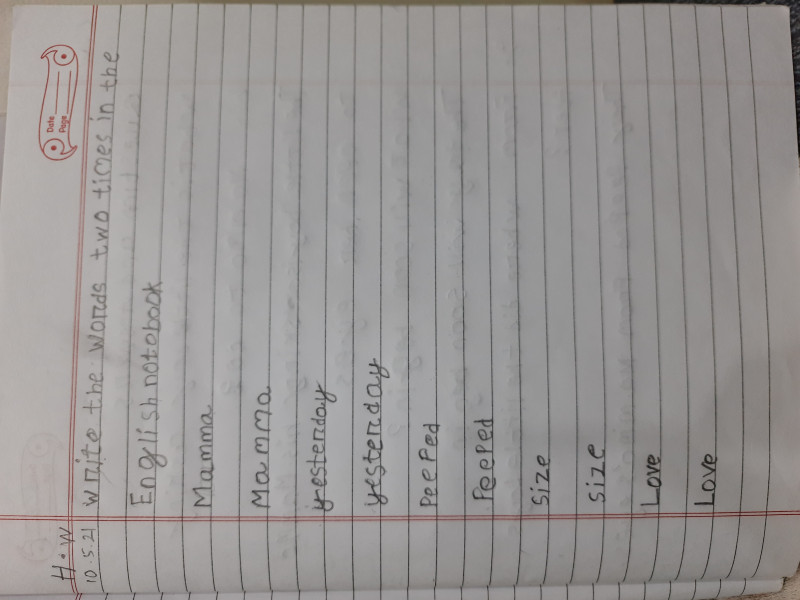 H.W
Date
Page
10.5.21 write the words two times in the
English notobook
Mamma
Mamma
yesterday
yesterday
Peeped
Peeped
Size
Size
Love
Love